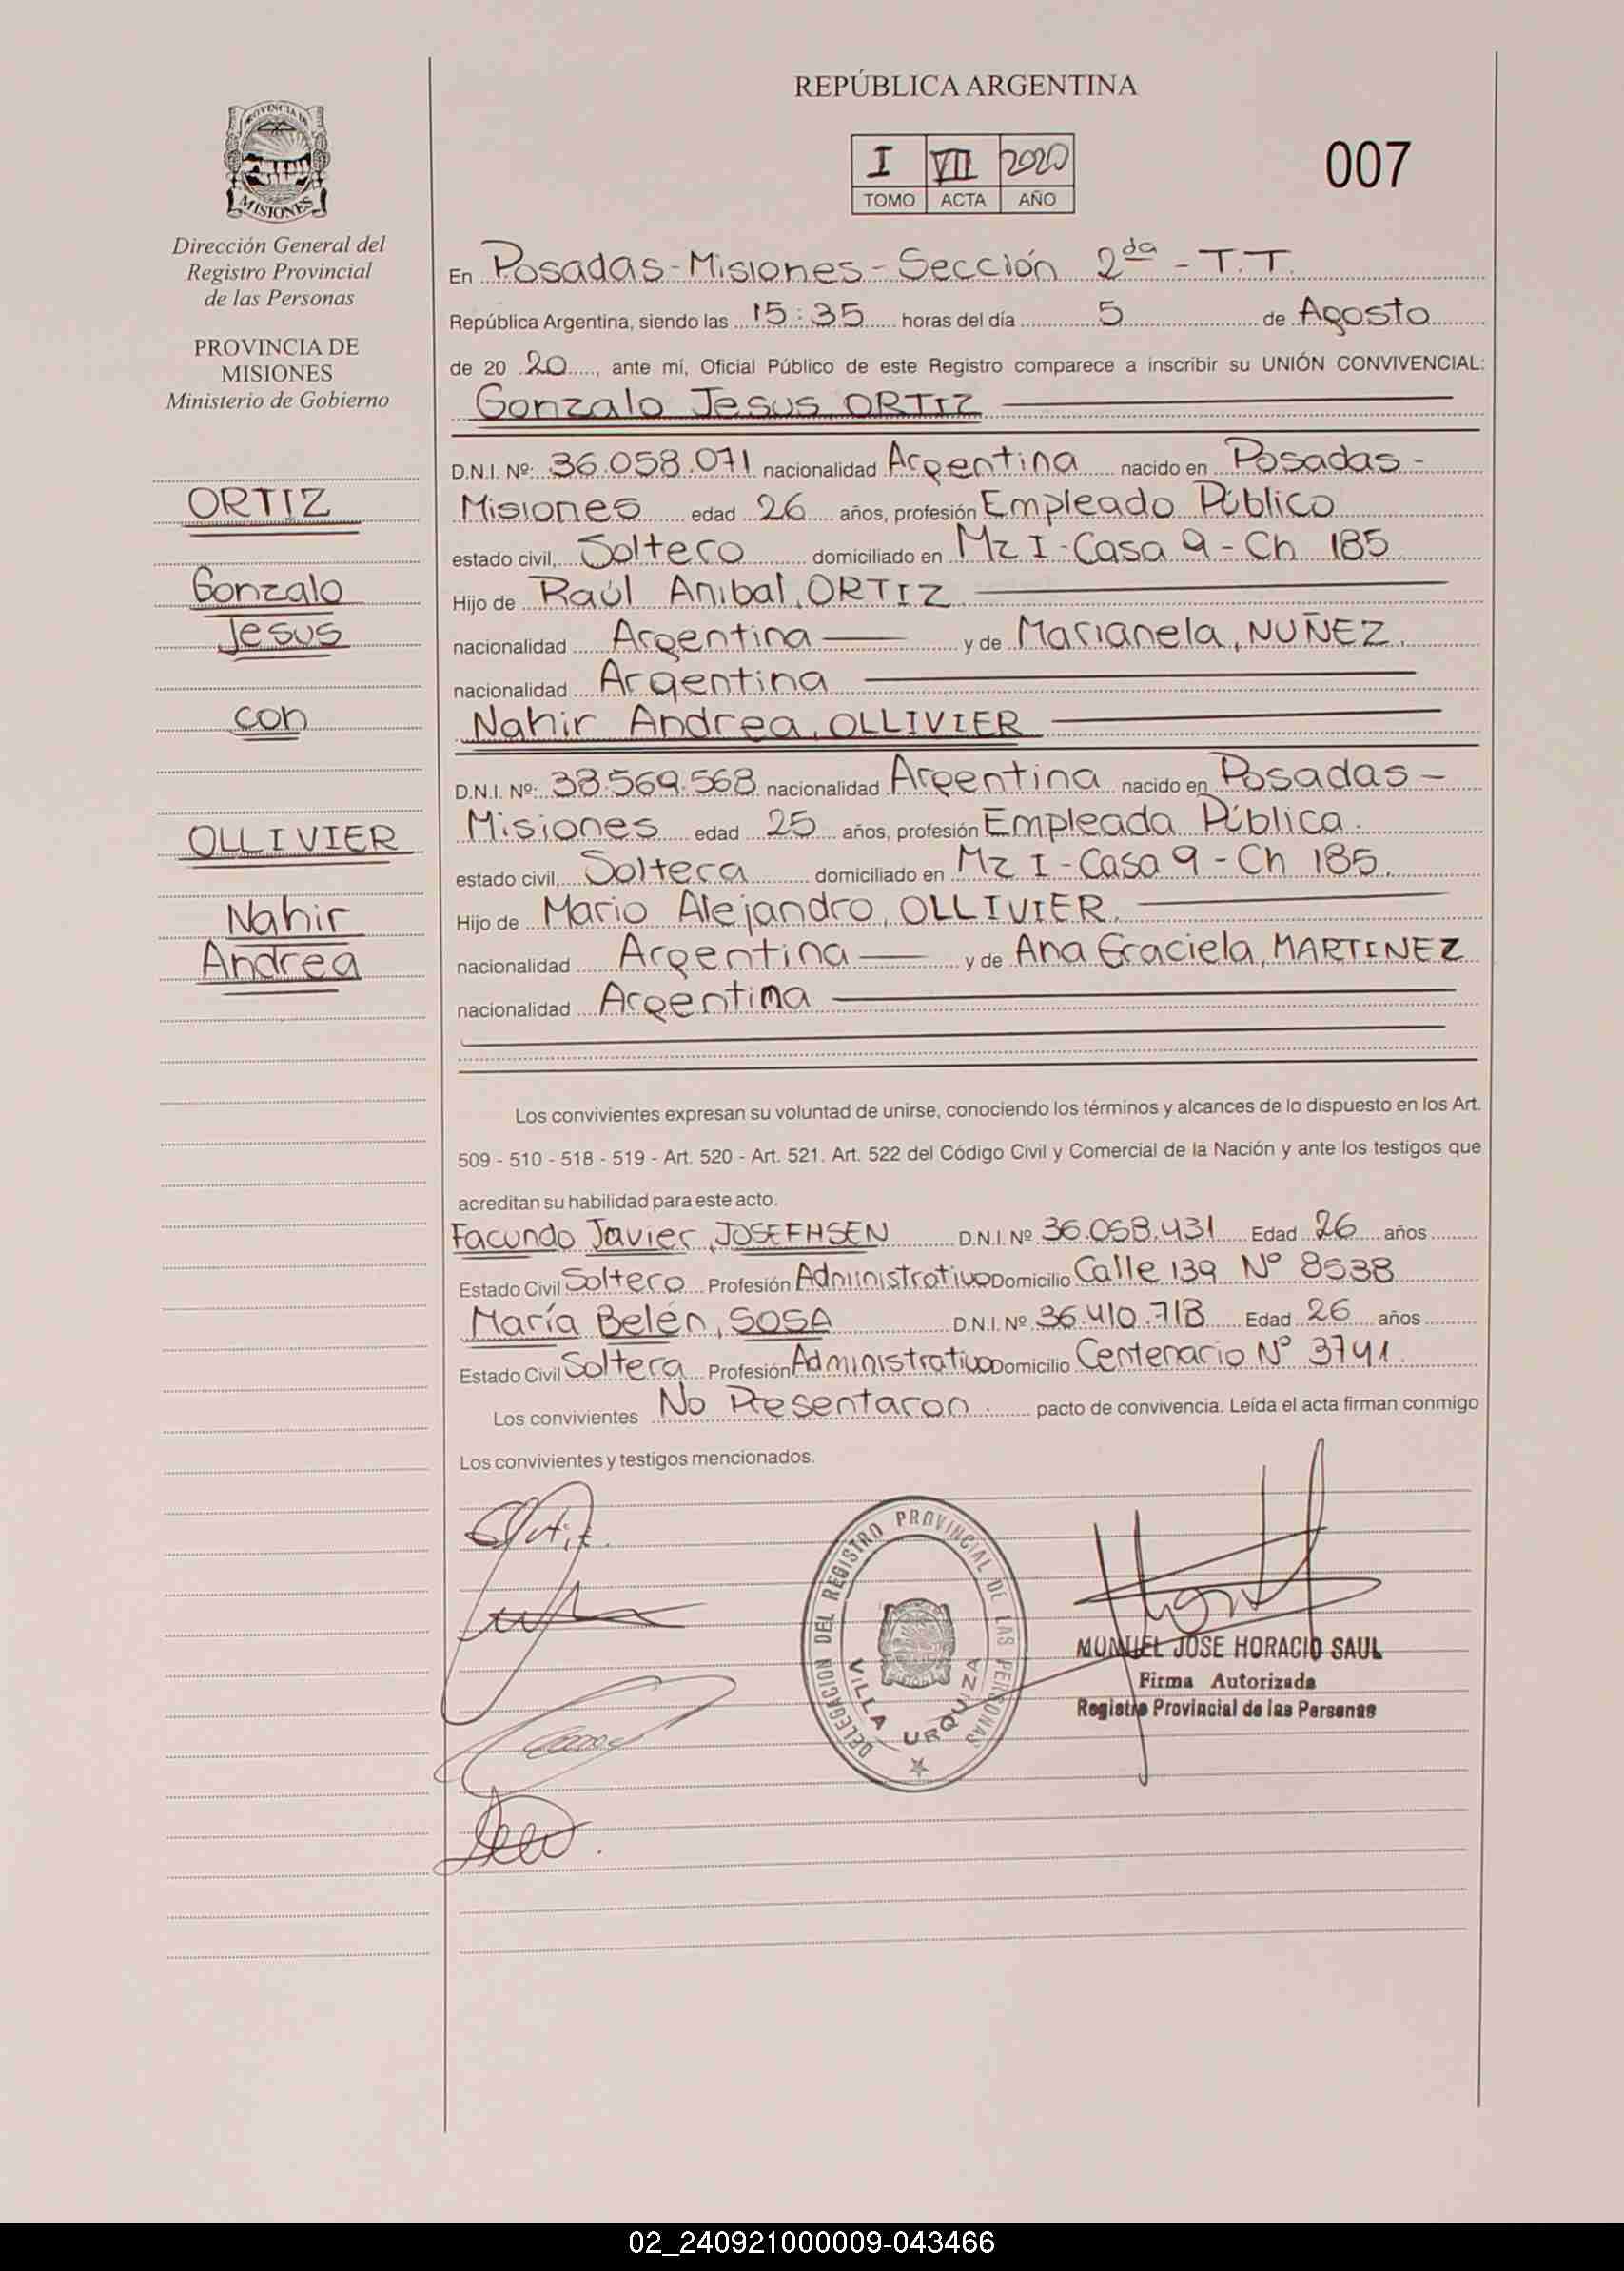 REPÚBLICA ARGENTINA
I VII 2020
TOMO ACTA AÑO
007
PROVINCIA DE
MISIONES
Dirección General del
Registro Provincial
de las Personas
PROVINCIA DE
MISIONES
Ministerio de Gobierno
ORTIZ
Gonzalo
Jesus
con
OLLIVIER
Nahir
Andrea
En Posadas-Misiones-Sección 2da - T.T.
República Argentina, siendo las 15:35 horas del día 5 de Agosto
de 20 20, ante mí, Oficial Público de este Registro comparece a inscribir su UNIÓN CONVIVENCIAL:
Gonzalo Jesus, ORTIZ
D.N.I. Nº: 36.058.071 nacionalidad Argentina nacido en Posadas-
Misiones edad 26 años, profesión Empleado Público
estado civil, Soltero domiciliado en Mz I-Casa 9-Ch 185
Hijo de Raúl Anibal, ORTIZ
nacionalidad Argentina y de Marianela, NUÑEZ.
nacionalidad Argentina
Nahir Andrea, OLLIVIER
D.N.I. Nº: 38.569.568 nacionalidad Argentina nacido en Posadas-
Misiones edad 25 años, profesión Empleada Pública.
estado civil, Soltera domiciliado en Mz I-Casa 9-Ch 185.
Hijo de Mario Alejandro, OLLIVIER.
nacionalidad Argentina y de Ana Graciela, MARTINEZ
nacionalidad Argentina
Los convivientes expresan su voluntad de unirse, conociendo los términos y alcances de lo dispuesto en los Art.
509 - 510 - 518 - 519 - Art. 520 - Art. 521. Art. 522 del Código Civil y Comercial de la Nación y ante los testigos que
acreditan su habilidad para este acto.
Facundo Javier, JOSEFHSEN D.N.I. Nº 36.058.431 Edad 26 años
Estado Civil Soltero Profesión Administrativo Domicilio Calle 139 Nº 8538
María Belén, SOSA D.N.I. Nº 36.410.718 Edad 26 años
Estado Civil Soltera Profesión Administrativo Domicilio Centenario Nº 3741.
Los convivientes No Presentaron. pacto de convivencia. Leída el acta firman conmigo
Los convivientes y testigos mencionados.
DELEGACION DEL REGISTRO PROVINCIAL DE LAS PERSONAS
VILLA URQUIZA
JOSE HORACIO SAUL
Firma Autorizada
Registro Provincial de las Personas
02_240921000009-043466